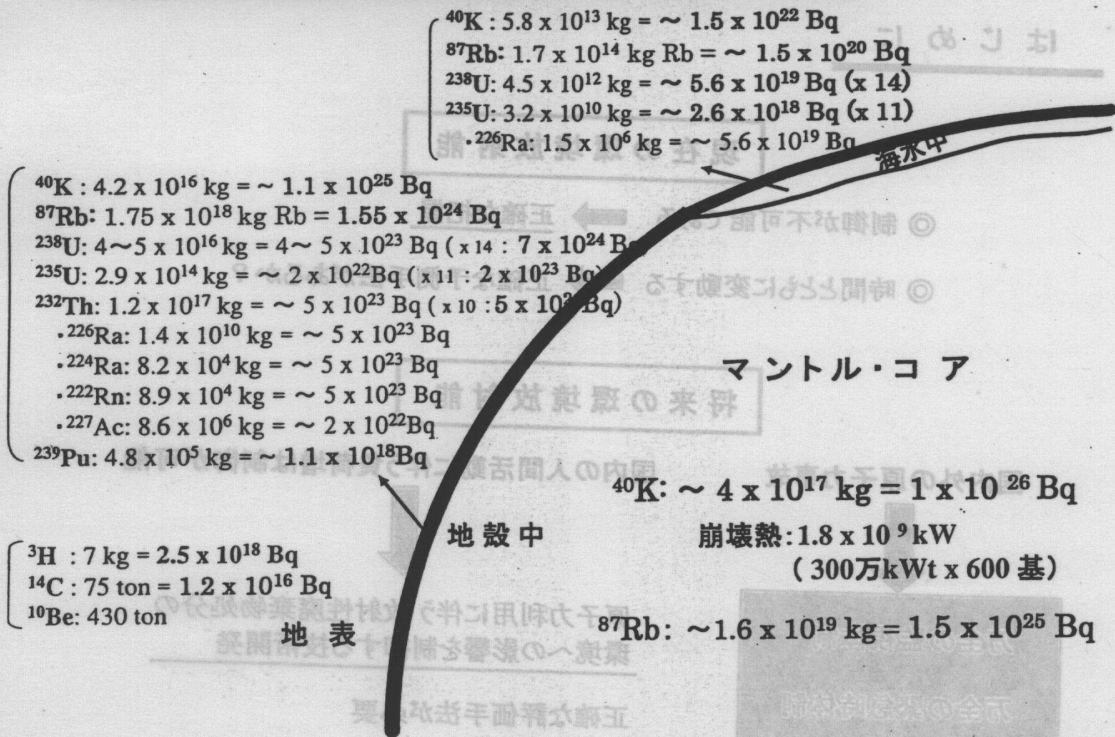 ⁴⁰K : 5.8 x 10¹³ kg = ~ 1.5 x 10²² Bq
⁸⁷Rb: 1.7 x 10¹⁴ kg Rb = ~ 1.5 x 10²⁰ Bq
²³⁸U: 4.5 x 10¹² kg = ~ 5.6 x 10¹⁹ Bq (x 14)
²³⁵U: 3.2 x 10¹⁰ kg = ~ 2.6 x 10¹⁸ Bq (x 11)
·²²⁶Ra: 1.5 x 10⁶ kg = ~ 5.6 x 10¹⁹ Bq
海水中
⁴⁰K : 4.2 x 10¹⁶ kg = ~ 1.1 x 10²⁵ Bq
⁸⁷Rb: 1.75 x 10¹⁸ kg Rb = 1.55 x 10²⁴ Bq
²³⁸U: 4~5 x 10¹⁶ kg = 4~ 5 x 10²³ Bq ( x 14 : 7 x 10²⁴ Bq
²³⁵U: 2.9 x 10¹⁴ kg = ~ 2 x 10²²Bq ( x 11 : 2 x 10²³ Bq)
²³²Th: 1.2 x 10¹⁷ kg = ~ 5 x 10²³ Bq ( x 10 : 5 x Bq)
·²²⁶Ra: 1.4 x 10¹⁰ kg = ~ 5 x 10²³ Bq
·²²⁴Ra: 8.2 x 10⁴ kg = ~ 5 x 10²³ Bq
·²²²Rn: 8.9 x 10⁴ kg = ~ 5 x 10²³ Bq
·²²⁷Ac: 8.6 x 10⁶ kg = ~ 2 x 10²²Bq
²³⁹Pu: 4.8 x 10⁵ kg = ~ 1.1 x 10¹⁸Bq
地殻中
³H : 7 kg = 2.5 x 10¹⁸ Bq
¹⁴C : 75 ton = 1.2 x 10¹⁶ Bq
¹⁰Be: 430 ton
地表
マントル・コア
⁴⁰K: ~ 4 x 10¹⁷ kg = 1 x 10²⁶ Bq
崩壊熱:1.8 x 10⁹ kW
( 300万kWt x 600 基)
⁸⁷Rb: ~1.6 x 10¹⁹ kg = 1.5 x 10²⁵ Bq
はじめに
現在の環境放射能
◎ 制御が不可能である
◎ 時間とともに変動する
将来の環境放射能
国内の人間活動に伴う
国内外の原子力事故
原子力利用に伴う放射性廃棄物処分の
環境への影響を制御する技術開発
正確な評価手法が必要